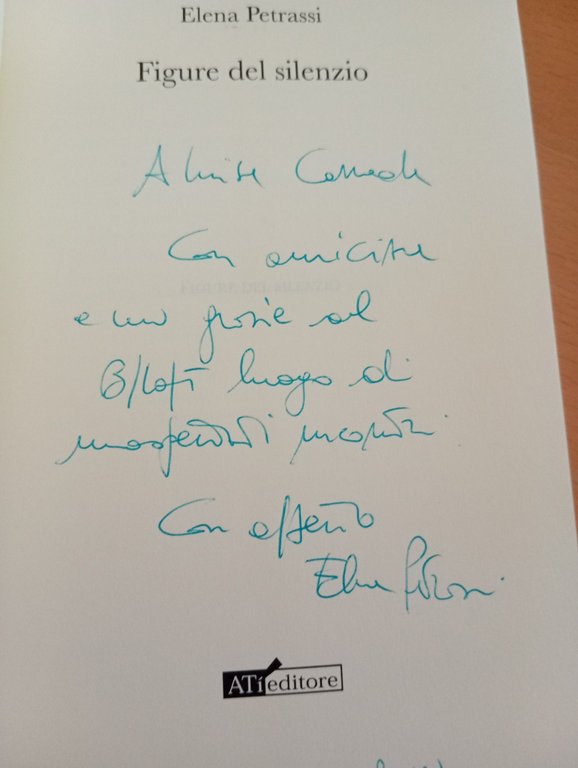 Elena Petrassi
Figure del silenzio
A Luisa
Con amicizia
FIGURE DEL SILENZIO
e un grazie al
luogo di
inaspettati incontri.
Con affetto
Elena Petrassi
ATìeditore